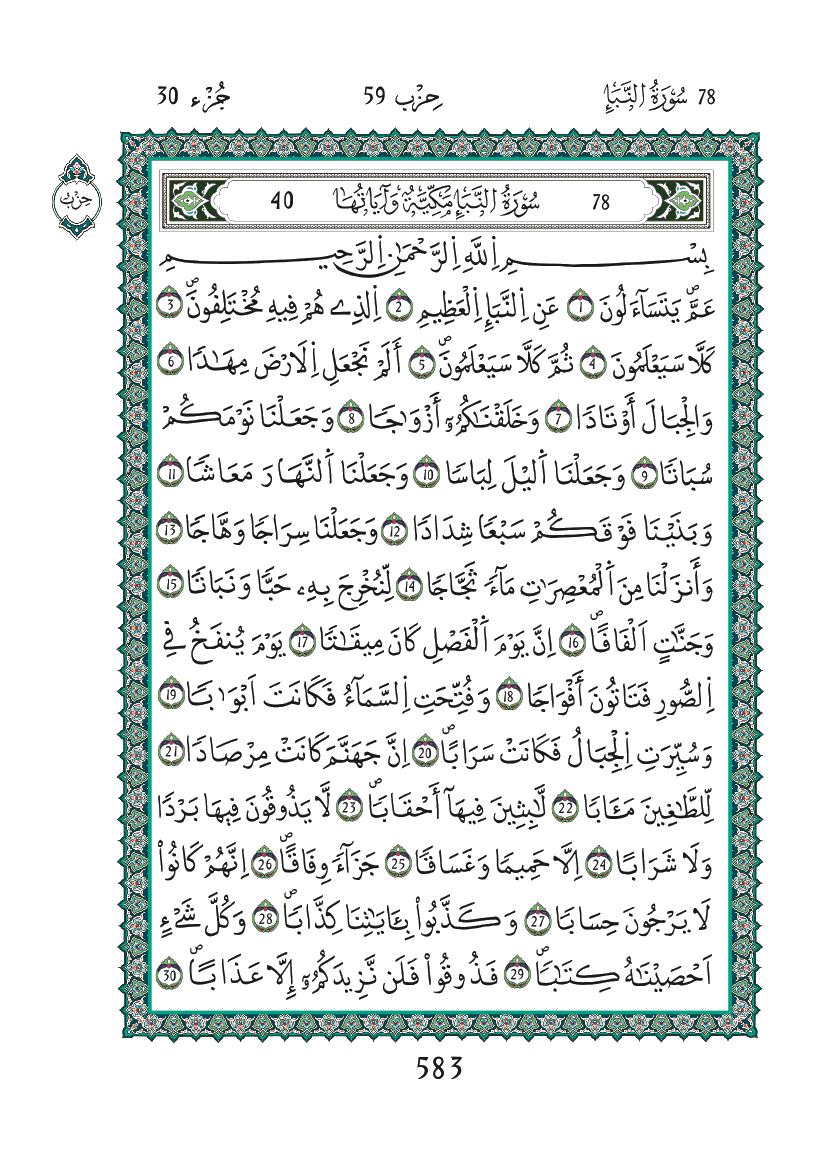 78 سُورَةُ النَّبَإِ حِزْب 59 جُزْء 30
حِزْب
78 سُورَةُ النَّبَإِ مَكِّيَّةٌ وَآيَاتُهَا 40
بِسْمِ اِ۬للَّهِ اِ۬لرَّحْمَٰنِ اِ۬لرَّحِيمِ
عَمَّ يَتَسَآءَلُونَ 1 عَنِ اِ۬لنَّبَإِ اِ۬لْعَظِيمِ 2 اِ۬لذِے هُمْ فِيهِ مُخْتَلِفُونَۖ 3
كَلَّا سَيَعْلَمُونَ 4 ثُمَّ كَلَّا سَيَعْلَمُونَۖ 5 أَلَمْ نَجْعَلِ اِ۬لَارْضَ مِهَٰدٗا 6
وَالْجِبَالَ أَوْتَادٗا 7 وَخَلَقْنَٰكُمُۥٓ أَزْوَٰجٗا 8 وَجَعَلْنَا نَوْمَكُمْ
سُبَاتٗا 9 وَجَعَلْنَا اَ۬ليْلَ لِبَاسٗا 10 وَجَعَلْنَا اَ۬لنَّهَارَ مَعَاشٗا 11
وَبَنَيْنَا فَوْقَكُمْ سَبْعٗا شِدَادٗا 12 وَجَعَلْنَا سِرَاجٗا وَهَّاجٗا 13
وَأَنزَلْنَا مِنَ اَ۬لْمُعْصِرَٰتِ مَآءٗ ثَجَّاجٗا 14 لِّنُخْرِجَ بِهِۦ حَبّٗا وَنَبَاتٗا 15
وَجَنَّٰتٍ اَلْفَافًاۖ 16 اِنَّ يَوْمَ اَ۬لْفَصْلِ كَانَ مِيقَٰتٗا 17 يَوْمَ يُنفَخُ فِے
اِ۬لصُّورِ فَتَاتُونَ أَفْوَاجٗا 18 وَفُتِّحَتِ اِ۬لسَّمَآءُ فَكَانَتَ اَبْوَٰبٗا 19
وَسُيِّرَتِ اِ۬لْجِبَالُ فَكَانَتْ سَرَابًاۖ 20 اِنَّ جَهَنَّمَ كَانَتْ مِرْصَادٗا 21
لِّلطَّٰغِينَ مَـَٔابٗا 22 لَّٰبِثِينَ فِيهَآ أَحْقَابٗاۖ 23 لَّا يَذُوقُونَ فِيهَا بَرْدٗا
وَلَا شَرَابًا 24 اِلَّا حَمِيمٗا وَغَسَاقٗا 25 جَزَآءٗ وِفَاقًاۖ 26 اِنَّهُمْ كَانُواْ
لَا يَرْجُونَ حِسَابٗا 27 وَكَذَّبُواْ بِـَٔايَٰتِنَا كِذَّابٗاۖ 28 وَكُلَّ شَےْءٍ
اَحْصَيْنَٰهُ كِتَٰبٗاۖ 29 فَذُوقُواْ فَلَن نَّزِيدَكُمُۥٓ إِلَّا عَذَابًاۖ 30
583